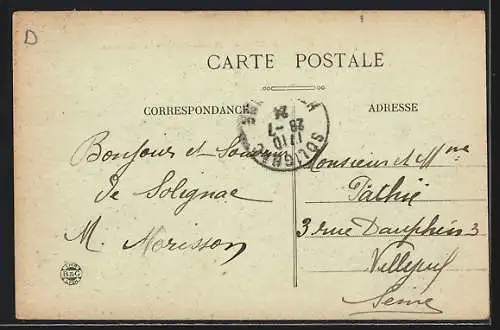 D
CARTE POSTALE
CORRESPONDANCE
ADRESSE
SOLIGNAC
17 10
28 - 7
24
Bonjour et Souvenir
de Solignac
M. Morisson
Monsieur et Mme
Pathié
3 rue Dauphin 3
Villejuif
Seine
B&G